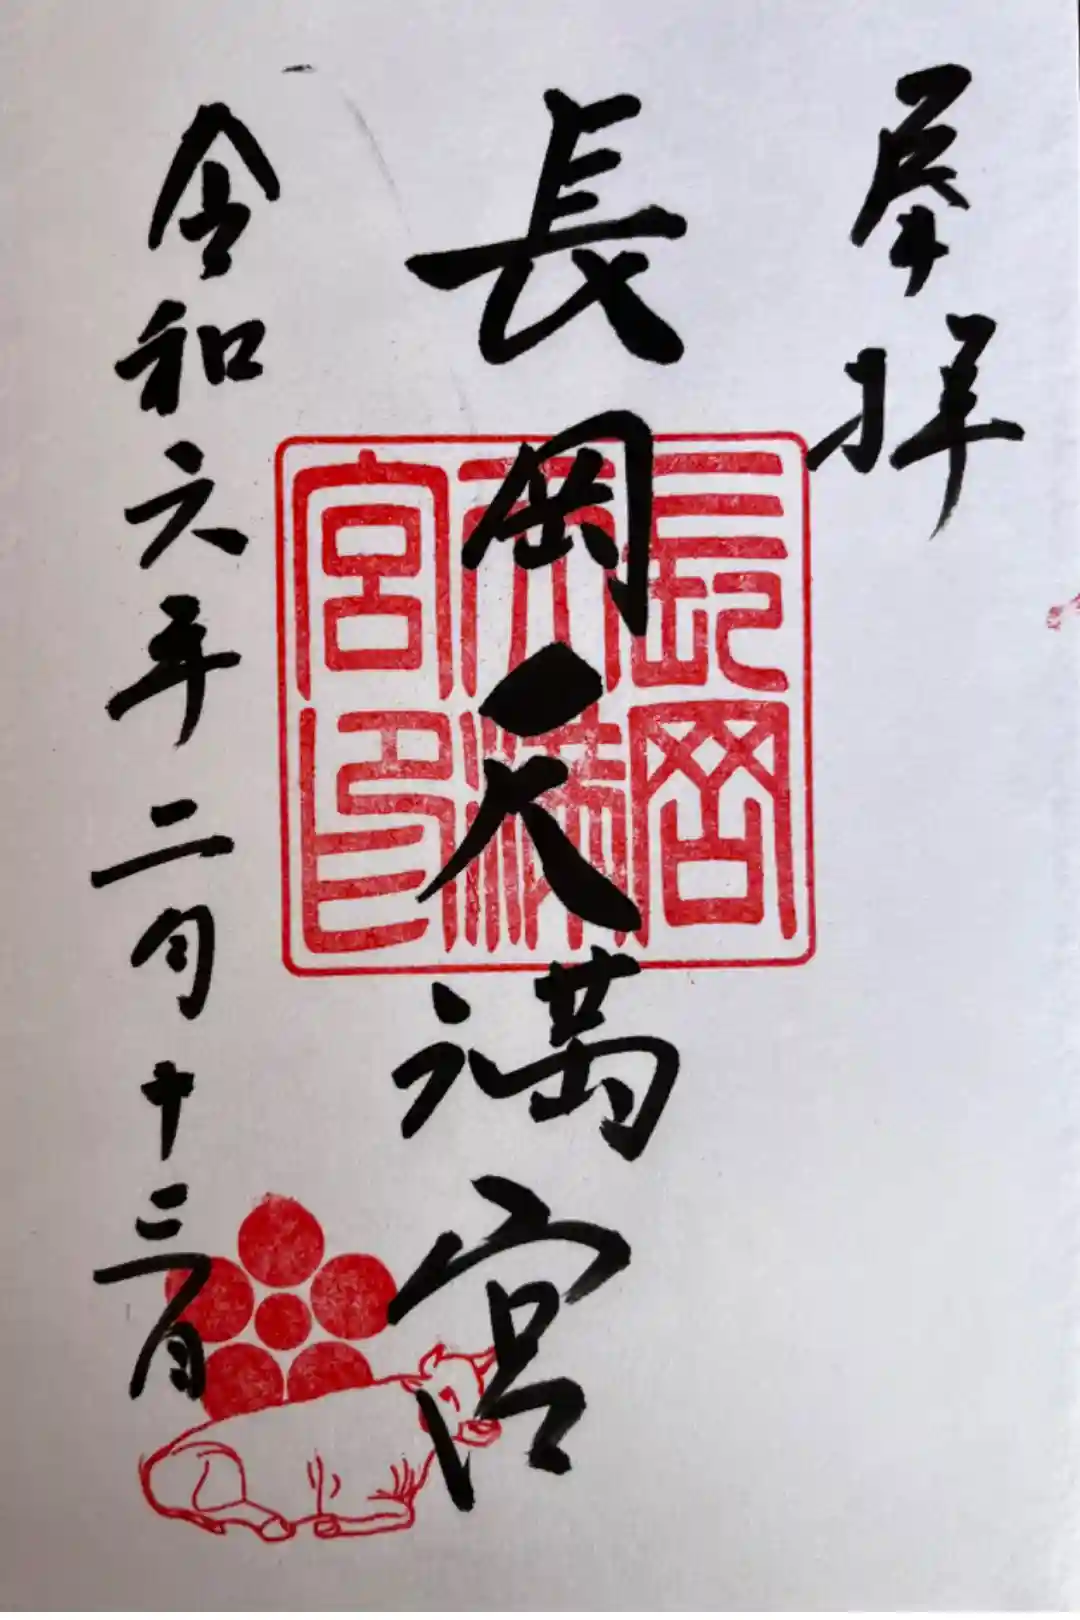 奉拝
長岡天満宮
令和六年二月十三日
長岡
天満
宮印